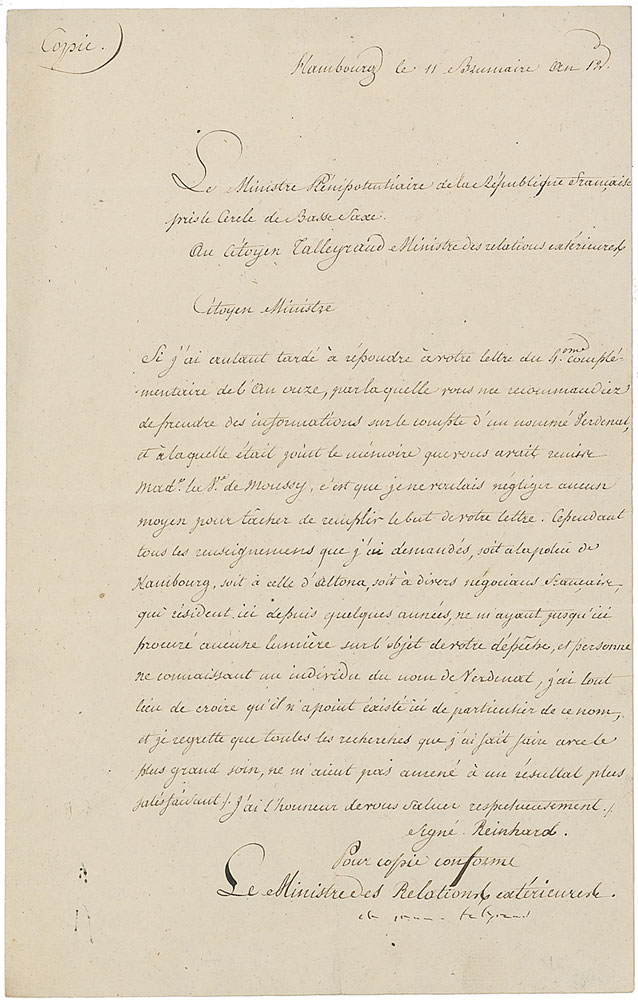 Copie.
Hambourg le 11 Brumaire An 12.
Le Ministre Plénipotentiaire de la République Française
près le Cercle de Basse Saxe.
Au Citoyen Talleyrand Ministre des relations extérieures
Citoyen Ministre
Si j'ai autant tardé à répondre à votre lettre du 4.ème complé-
-mentaire de l'An onze, par laquelle vous me recommandiez
de prendre des informations sur le compte d'un nommé Verdenat,
et à laquelle était joint le mémoire que vous avait remise
Mad.e la V.e de Moussy, c'est que je ne voulais négliger aucun
moyen pour tâcher de remplir le but de votre lettre. Cependant
tous les renseignemens que j'ai demandés, soit à la police de
Hambourg, soit à celle d'Altona, soit à divers négocians français,
qui résident ici depuis quelques années, ne m'ayant jusqu'ici
procuré aucune lumière sur l'objet de votre dépêche, et personne
ne connaissant un individu du nom de Verdenat, j'ai tout
lieu de croire qu'il n'a point éxisté ici de particulier de ce nom,
et je regrette que toutes les recherches que j'ai fait faire avec le
plus grand soin, ne m'aient pas amené à un résultat plus
satisfaisant /. J'ai l'honneur de vous saluer respectueusement /.
Signé Reinhard.
Pour copie conforme
Le Ministre des Relations extérieures.